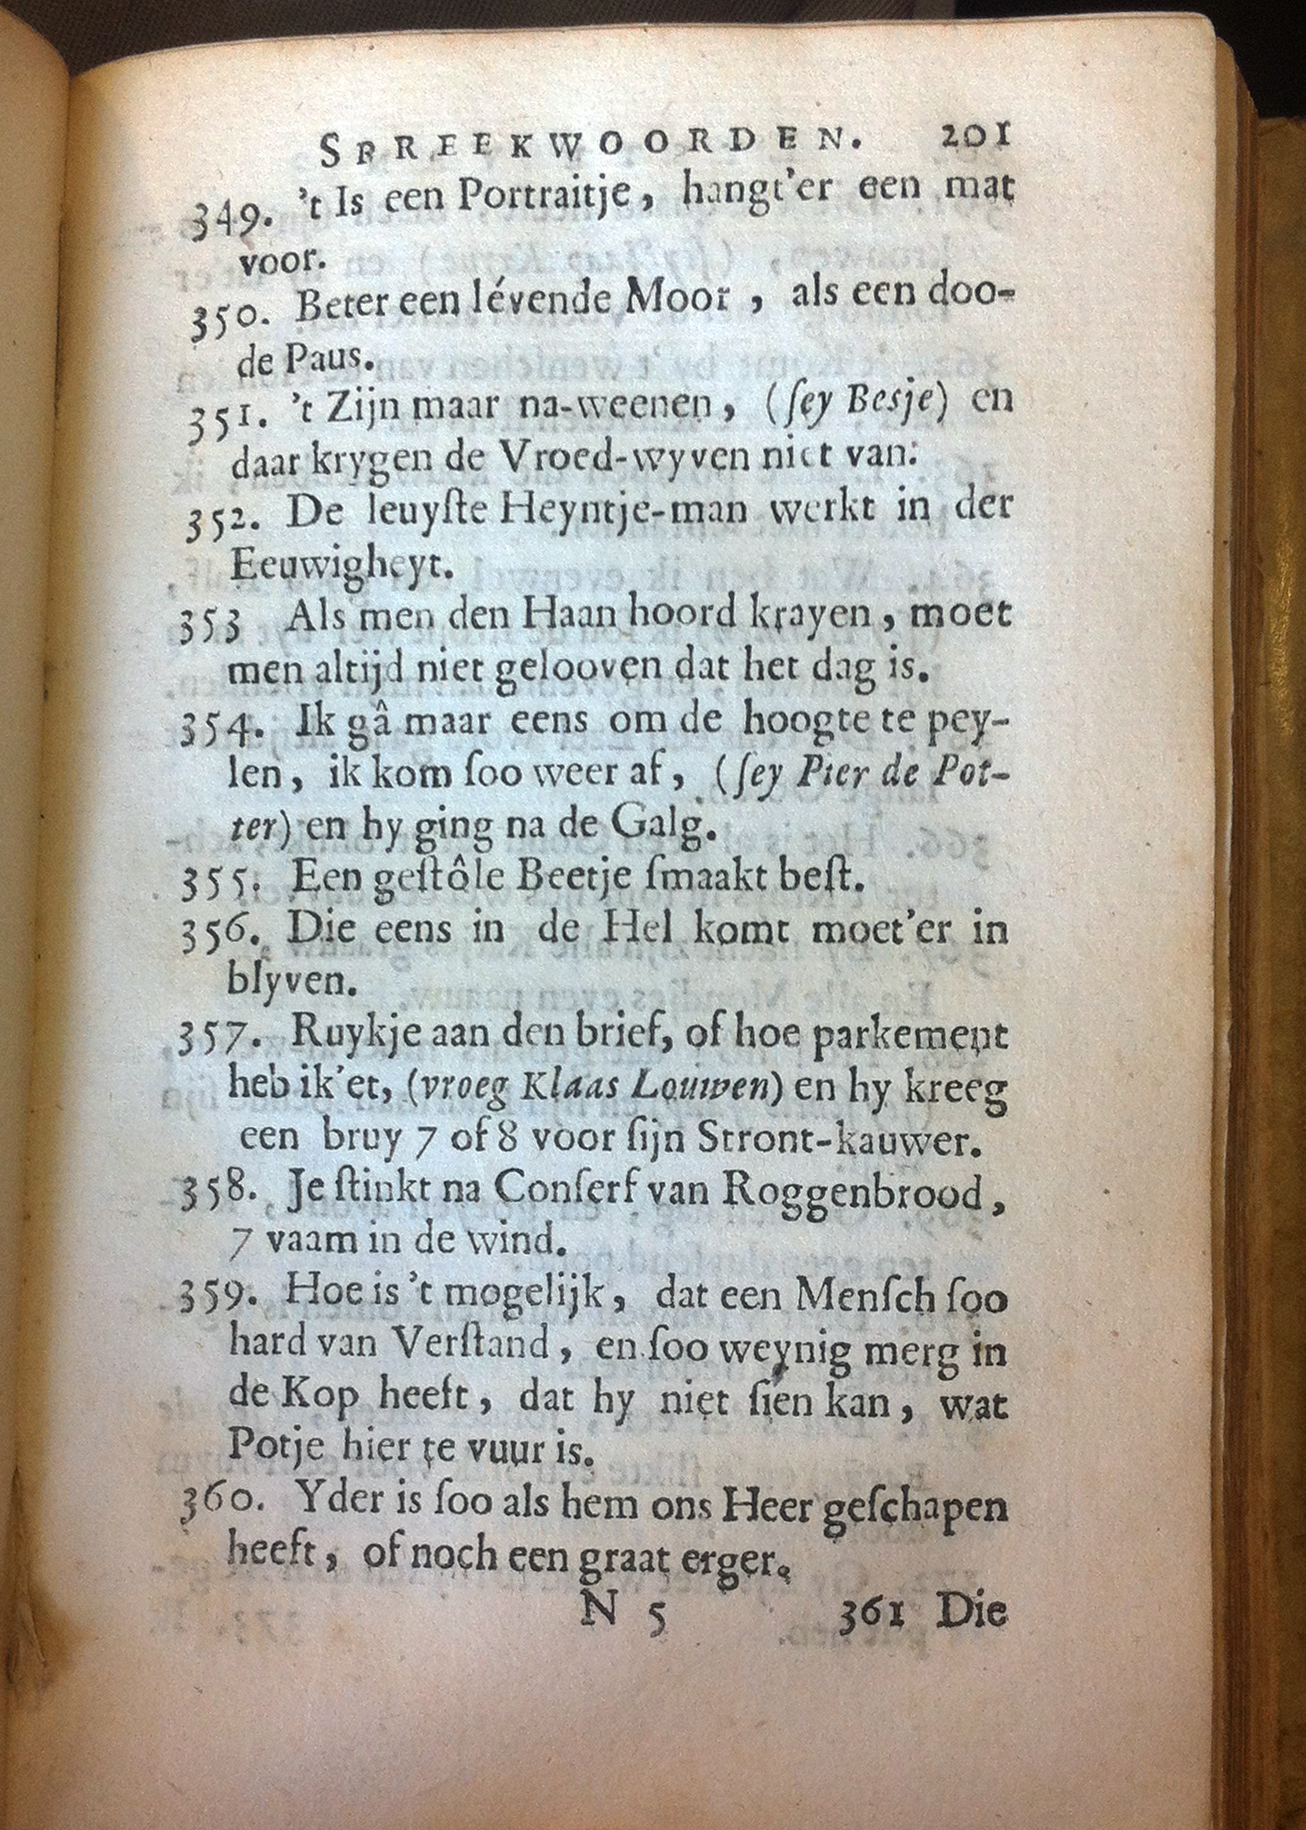 SPREEKWOORDEN. 201
349. 't Is een Portraitje, hangt'er een mat
voor.
350. Beter een lévende Moor, als een doo-
de Paus.
351. 't Zijn maar na-weenen, (ſey Besje) en
daar krygen de Vroed-wyven niet van.
352. De leuyſte Heyntje-man werkt in der
Eeuwigheyt.
353 Als men den Haan hoord krayen, moet
men altijd niet gelooven dat het dag is.
354. Ik gâ maar eens om de hoogte te pey-
len, ik kom ſoo weer af, (ſey Pier de Pot-
ter) en hy ging na de Galg.
355. Een geſtôle Beetje ſmaakt beſt.
356. Die eens in de Hel komt moet'er in
blyven.
357. Ruykje aan den brief, of hoe parkement
heb ik'et, (vroeg Klaas Louwen) en hy kreeg
een bruy 7 of 8 voor ſijn Stront-kauwer.
358. Je ſtinkt na Conſerf van Roggenbrood,
7 vaam in de wind.
359. Hoe is 't mogelijk, dat een Menſch ſoo
hard van Verſtand, en ſoo weynig merg in
de Kop heeft, dat hy niet ſien kan, wat
Potje hier te vuur is.
360. Yder is ſoo als hem ons Heer geſchapen
heeft, of noch een graat erger.
N 5 361 Die